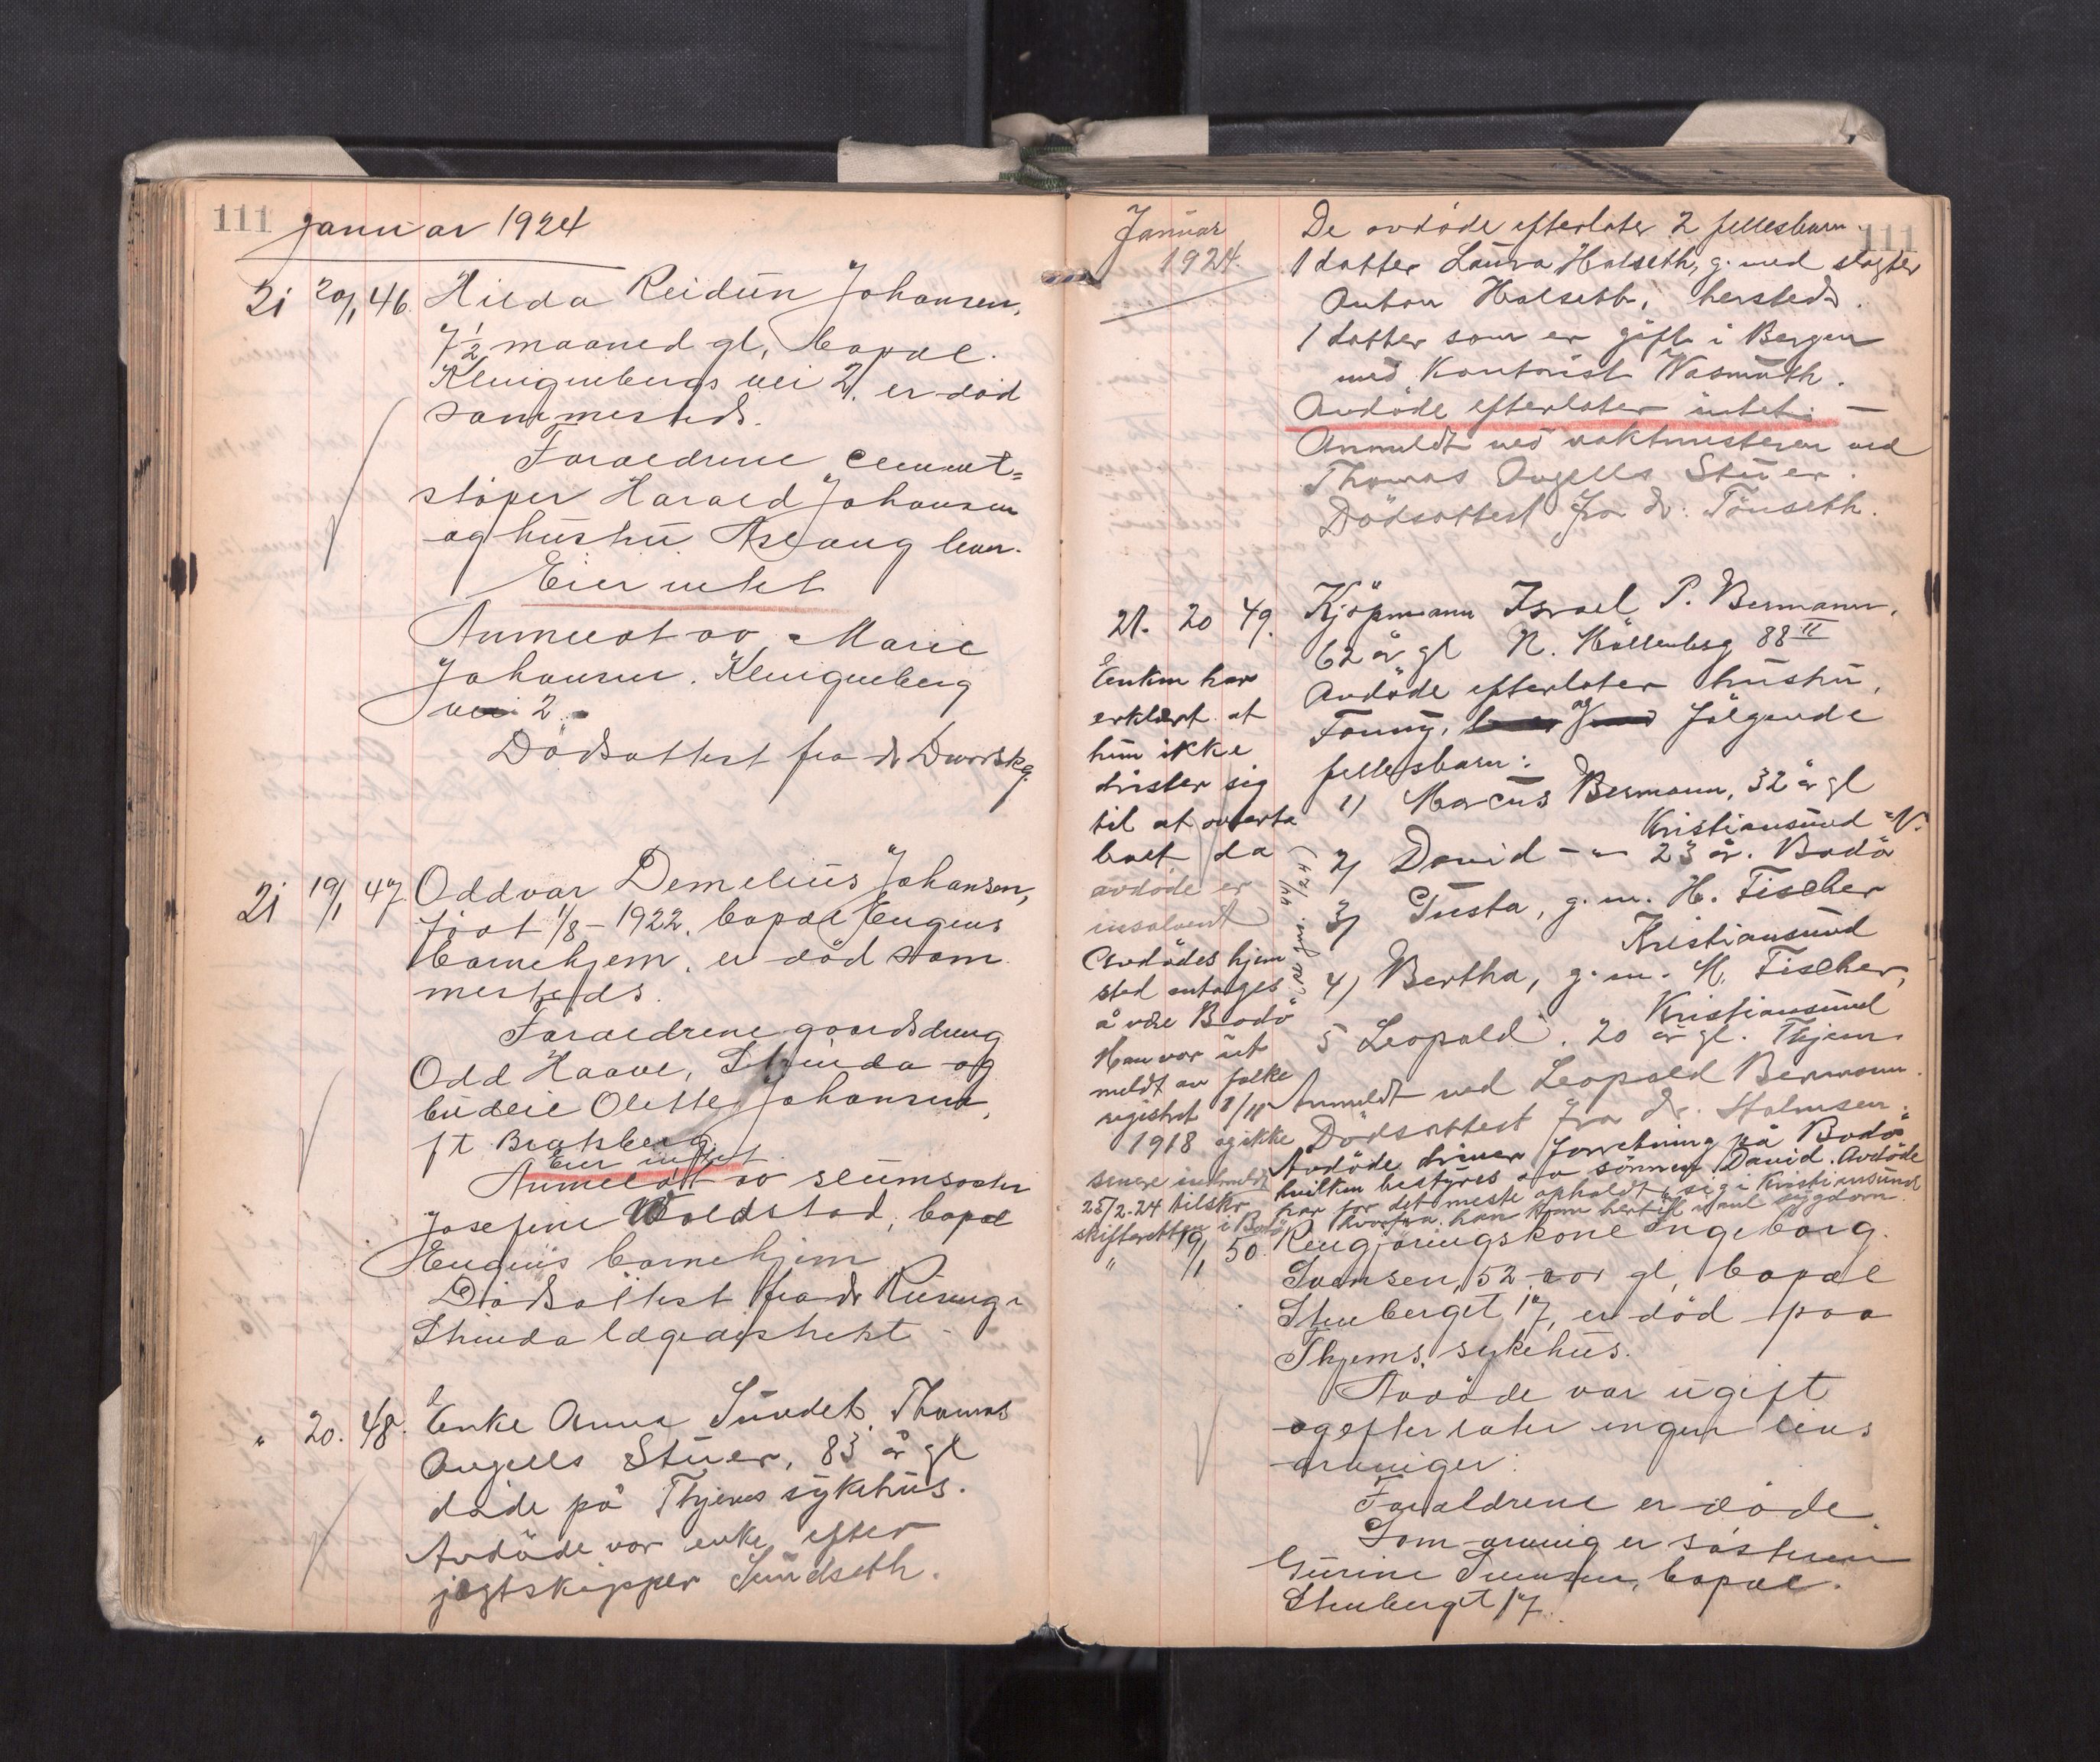 111 Januar 1924
21 20/1 46. Hilda Reidun Johansen,
7 1/2 maaned gl, bopæl.
Klingenbergs vei 2, er död
sammesteds.
Foraeldrene cement=
stöper Harald Johansen
og hustru Aslaug lever.
Eier intet
Anmeldt av Marie
Johansen, Klingenberg
vei 2.
Dödsattest fra dr
21 19/1 47 Oddvar Demelius Johansen,
födt 1/8 - 1922, bopæl Eugens
barnehjem, er död sam
mesteds.
Foraeldrene gaardsdreng
Odd Haave, Strinda og
budeie Olette Johansen,
ft
Eier intet.
Anmeldt av slumsöster
Josefine Voldstad, bopæl
Eugens barnehjem
Dödsattest fra dr
Strinda lægedistrikt
" 20. 48. Enke Anna Sundet, Thomas
Angells Stuer, 83 år gl
döde på Thjems sykehus.
Avdöde var enke efter
jægtskipper Sundseth.
Januar
1924.
111
De avdöde efterlater 2 fellesbarn.
1 datter Laura Halseth, g. med slagter
Anton Halseth, hersteds.
1 datter som er gift i Bergen
med Kontorist Wasmuth.
Avdöde efterlater intet. —
Anmeldt ved vaktmesteren ved
Thomas Angells Stuer.
Dödsattest fra dr. Tönseth.
21. 20 49. Kjöpmann Israel P. Bermann,
62 år gl N. Möllenberg 88 II
Avdöde efterlater hustru,
Fanny, og følgende
fellesbarn:
1) Marcus Bermann, 32 år gl
Kristiansund N.
2) David -"- 23 år. Bodö
3) Gusta, g. m. H. Fischer
Kristiansund
4) Bertha, g. m. M. Fischer,
Kristiansund
5 Leopold, 20 år gl. Thjem.
Anmeldt ved Leopold Bermann.
Dödsattest fra dr. Holmsen.
Avdöde driver forretning på Bodö
hvilken bestyres av sönnen David. Avdöde
har for det meste opholdt sig i Kristiansund
hvorfra han kom hertil sygdom.
Enken har
erklært at
hun ikke
drister sig
til at overta
boet da
avdöde er
insolvent
Avdödes hjem
sted antages
å være Bodö
Han var ut
meldt av folke
registret 8/11
1918 og ikke
senere indmeldt
25/2-24 tilskr.
skifteretten i Bodö
" 19/1 50. Rengjöringskone Ingeborg
Svensen, 52 aar gl, bopæl
Stenberget 17, er död paa
Thjems. sykehus.
Avdöde var ugift
og efterlater ingen livs
arvinger.
Foraeldrene er döde.
Som arving er sösteren
Gurine Svensen, bopæl.
Stenberget 17.